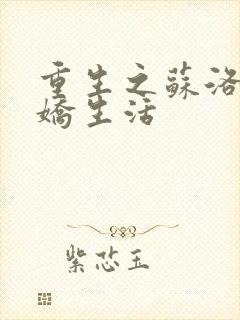 重生之蘇洛
嬌生活
紫芯玉